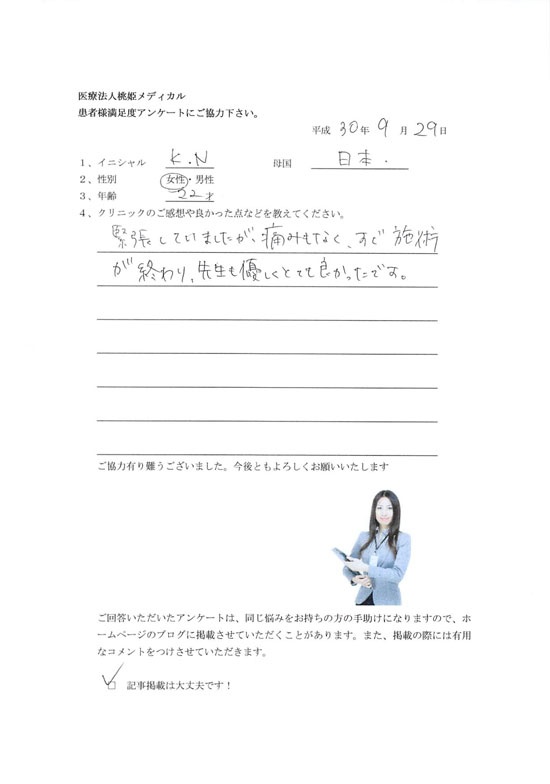 医療法人桃姫メディカル
患者様満足度アンケートにご協力下さい。
平成 30年 9 月 29日
1、イニシャル K.N 母国 日本.
2、性別 女性・男性
3、年齢 22才
4、クリニックのご感想や良かった点などを教えてください。
緊張していましたが、痛みもなく、すぐ施術
が終わり、先生も優しくとても良かったです。
ご協力有り難うございました。今後ともよろしくお願いいたします
ご回答いただいたアンケートは、同じ悩みをお持ちの方の手助けになりますので、ホ
ームページのブログに掲載させていただくことがあります。また、掲載の際には有用
なコメントをつけさせていただきます。
☑ 記事掲載は大丈夫です！